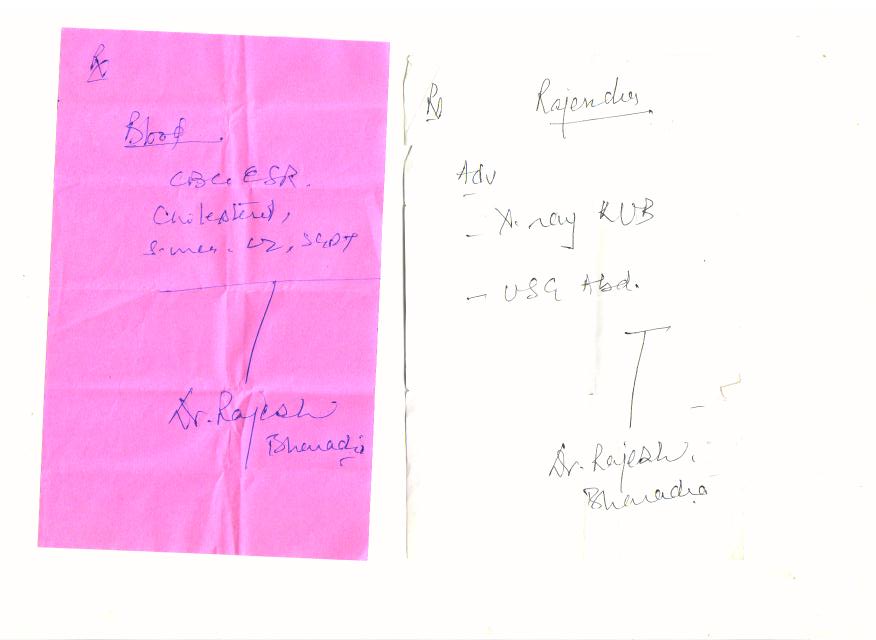 Rx
Blood.
CBC ESR.
Cholesterol,
SGPT
Dr. Rajesh
Bharadia
Rx
Rajendra
Adv
- X-ray KUB
- USG Abd.
Dr. Rajesh.
Bharadia